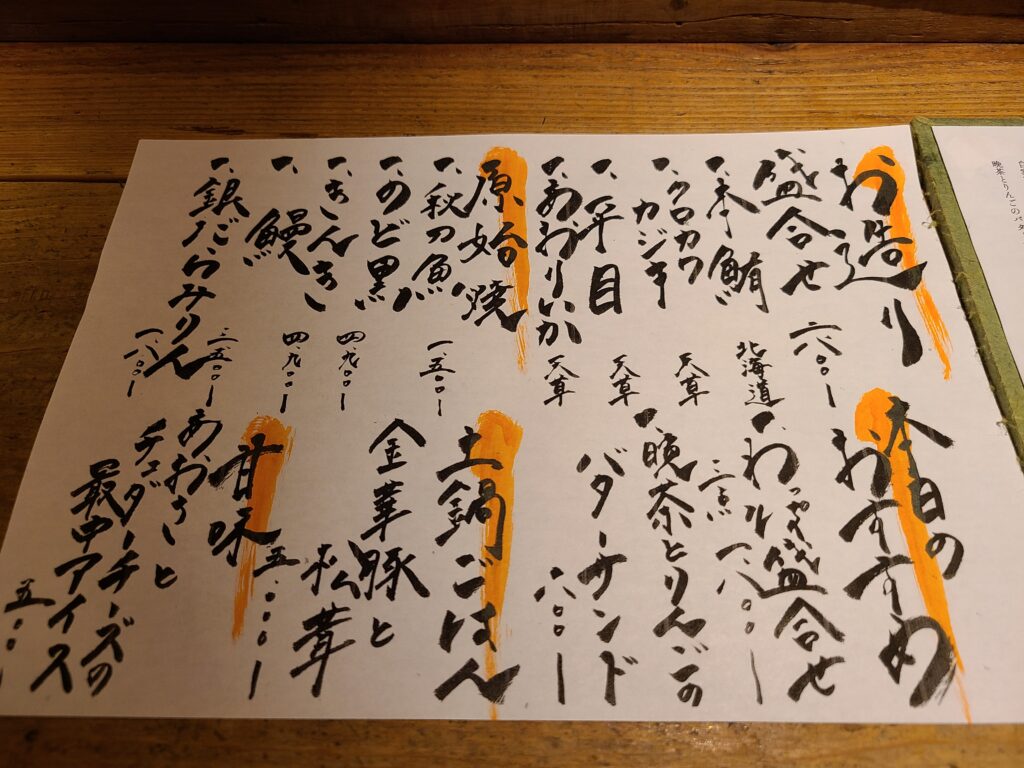 お造り
盛合せ
一、本鮪 北海道
一、クロカワ
カジキ 天草
一、平目 天草
一、あおりいか 天草
原始焼
一、秋刀魚 一、五〇〇ー
一、のど黒 四、九〇〇ー
一、きんき 四、九〇〇ー
一、鰻 三、五〇〇ー
一、銀だらみりん 一、八〇〇ー
本日の
おすすめ
盛合せ
三点 一、八〇〇ー
一、晩茶とりんごの
バターサンド
土鍋ごはん
金華豚と
松茸
五、〇〇〇ー
甘味
あおさと
チェダーチーズの
最中アイス
晩茶とりんごのバタ